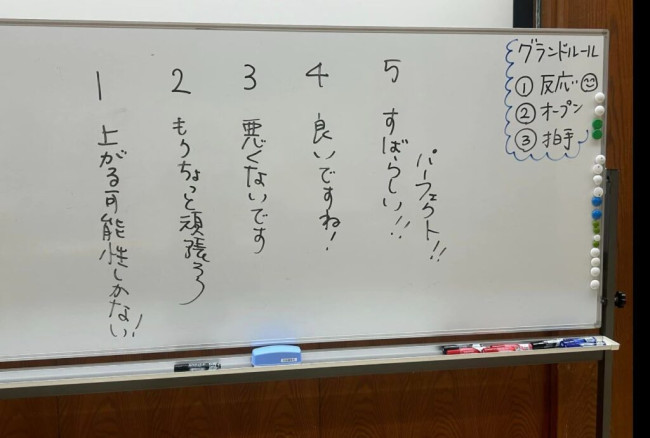 1 上がる可能性しかない！
2 もうちょっと頑張ろう
3 悪くないです
4 良いですね！
5 すばらしい！！
パーフェクト！！
グランドルール
① 反応
② オープン
③ 拍手